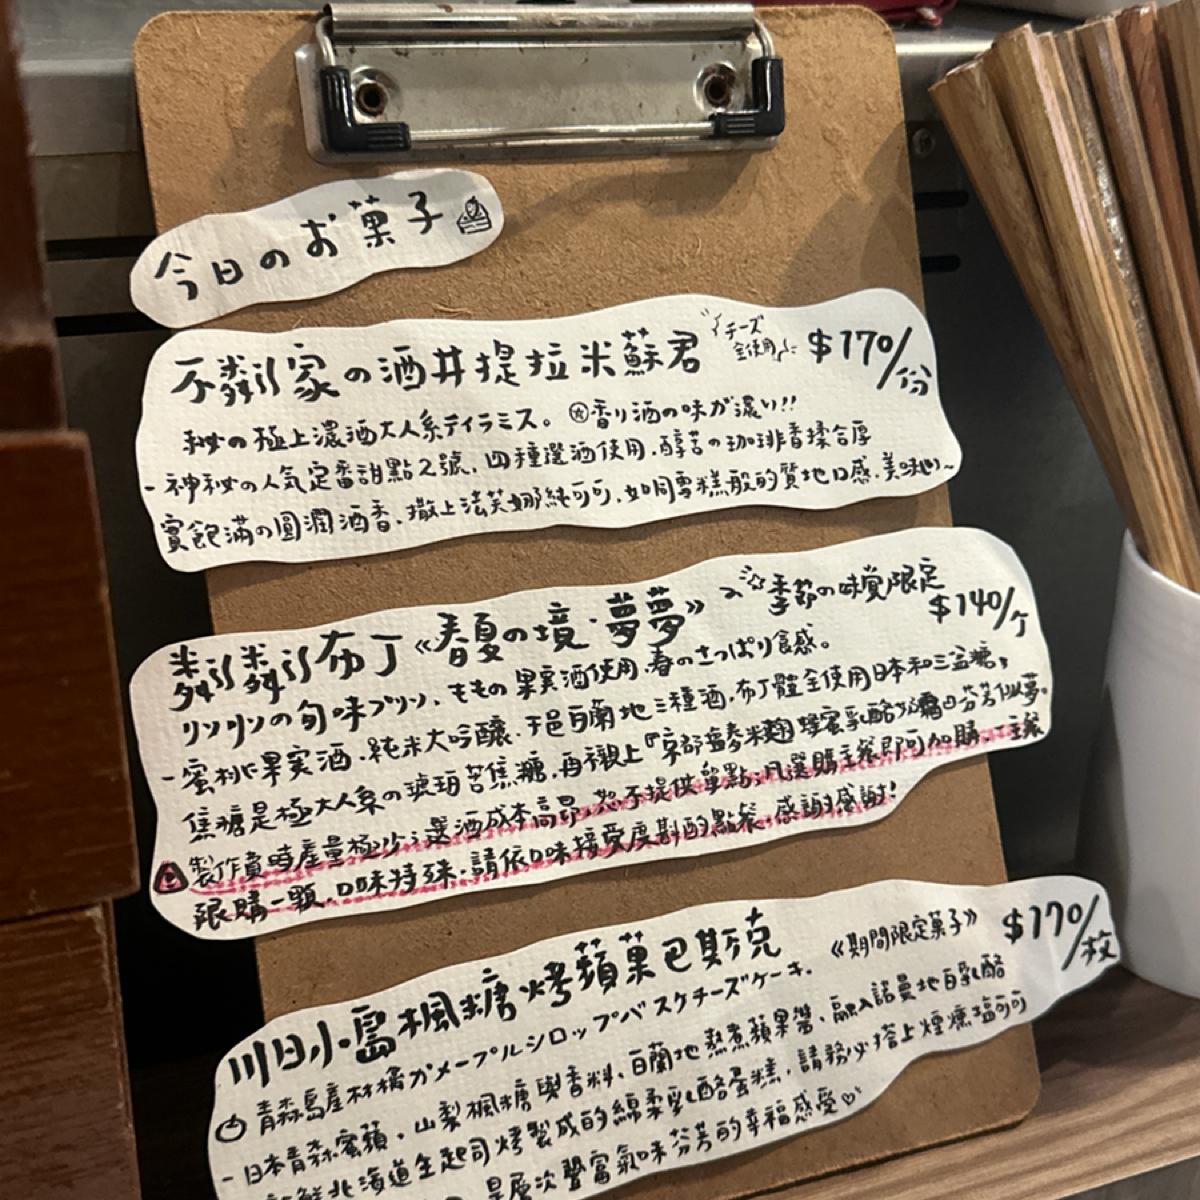 今日のお菓子
不粼家の酒井提拉米蘇君 チーズ全使用 $170/份
秘の極上濃酒大人系ティラミス。香り酒の味が濃い!!
- 神秘の人気定番甜點2號, 四種選酒使用, 醇苦の珈琲香揉合厚
實飽滿の圓潤酒香, 撒上法芙娜純可可, 如同雪糕般的質地口感, 美味い~
粼粼布丁《春夏の境·夢夢》 季節の味覚限定 $140/个
リンリンの旬味プリン, ももの果実酒使用, 春のさっぱり食感。
- 蜜桃果実酒, 純米大吟釀, 白蘭地三種酒, 布丁體全使用日本和三盆糖,
焦糖是極大人系の琥珀苦焦糖, 再襯上『京都 米麹 蜜乳酪 』芬芳似夢。
製作費時產量極少, 選酒成本高昂, 不提供單點, 凡選購主餐即可加購, 一主餐
限購一顆, 口味特殊, 請依口味接受度斟酌點餐, 感謝感謝!
川日小島楓糖烤蘋果巴斯克 《期間限定菓子》 $170/枚
青森島産林檎がメープルシロップバスクチーズケーキ.
- 日本青森蜜蘋, 山梨楓糖與香料, 白蘭地熬煮蘋果醬, 融入諾曼地白乳酪
新鮮北海道全起司烤製成的綿柔乳酪蛋糕, 請務必搭上煙燻塩可可
是層次豐富氣味芬芳的幸福感受♡